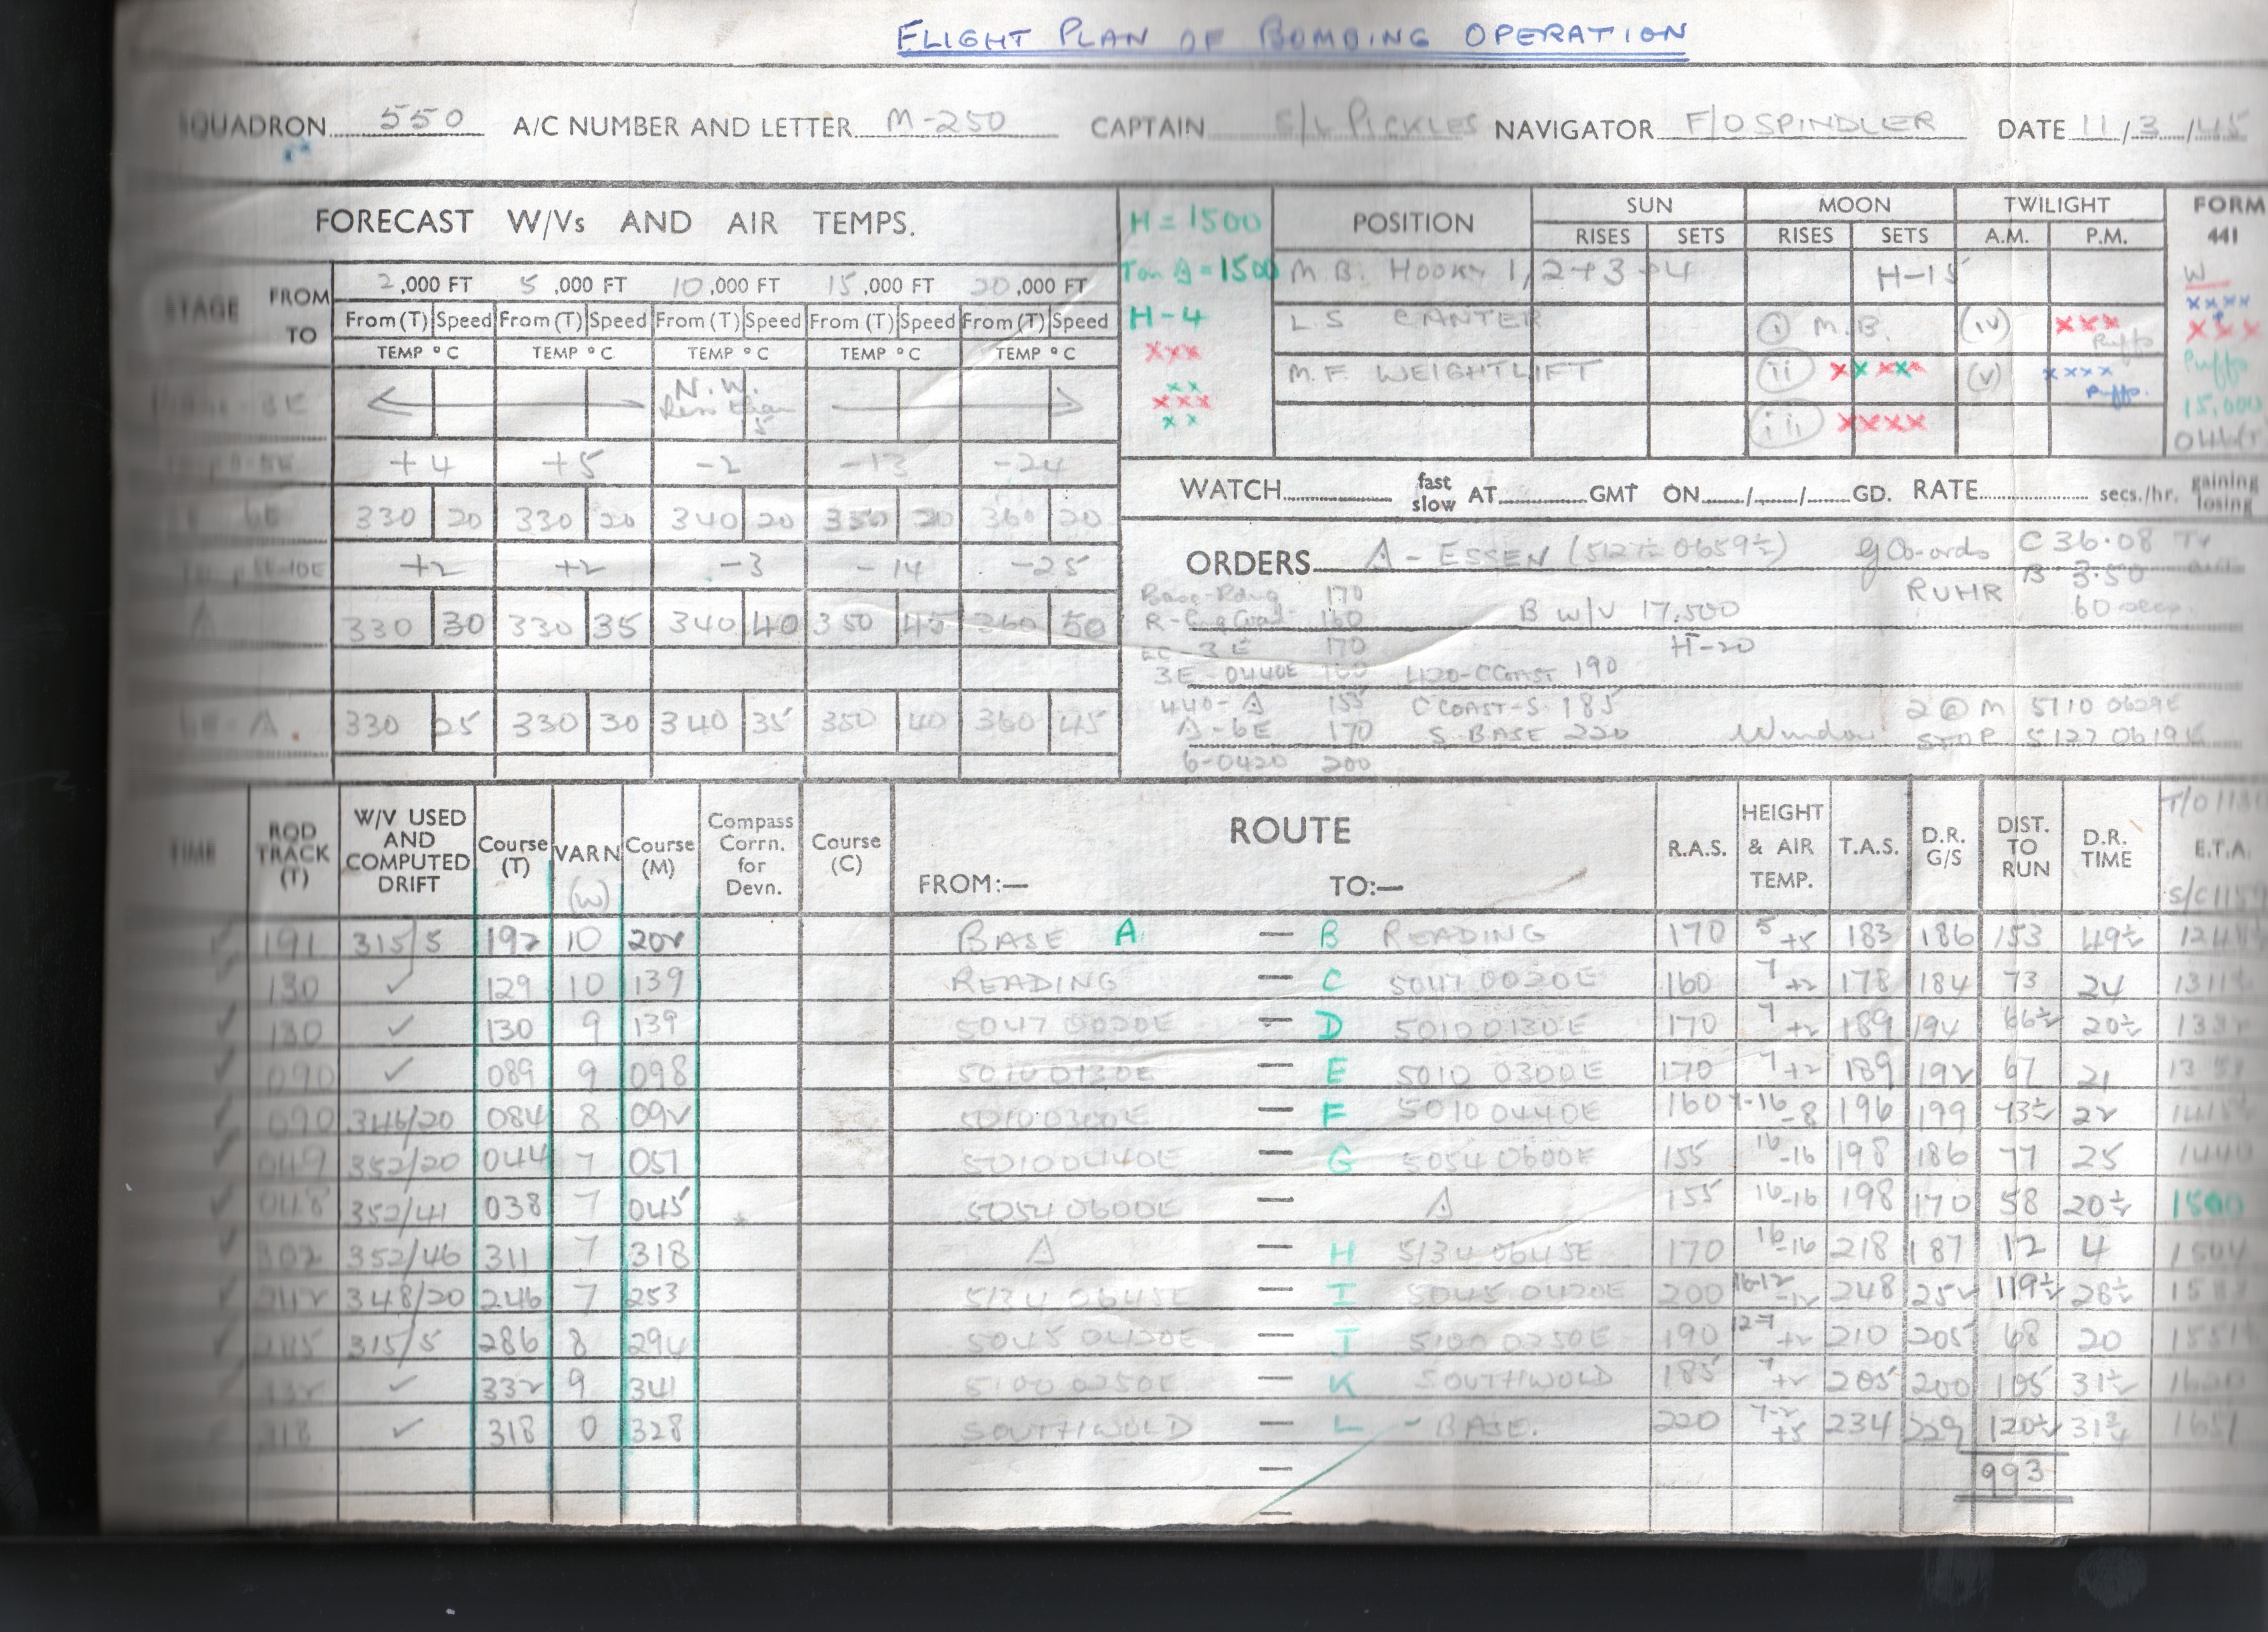 FLIGHT PLAN OF BOMBING OPERATION
SQUADRON 550 A/C NUMBER AND LETTER M-250 CAPTAIN S/L PICKLES NAVIGATOR F/O SPINDLER DATE 11/3/45
FORECAST W/Vs AND AIR TEMPS.
STAGE FROM TO
2,000 FT 5,000 FT 10,000 FT 15,000 FT 20,000 FT
From (T) Speed From (T) Speed From (T) Speed From (T) Speed From (T) Speed
TEMP °C TEMP °C TEMP °C TEMP °C TEMP °C
3E N.W. Less than 15
+4 +5 -2 -13 -24
6E 330 20 330 20 340 20 350 20 360 20
+2 +2 -3 -14 -25
330 30 330 35 340 40 350 45 360 50
6E-A. 330 25 330 30 340 35 350 40 360 45
H = 1500
= 1500
H-4
xxx
xx
xxx
xx
POSITION SUN MOON TWILIGHT FORM 441
RISES SETS RISES SETS A.M. P.M.
M.B. HOOKY 1, 2+3+4 H-15
L.S CANTER (i) M.B. (iv) xxx Puffs
M.F. WEIGHTLIFT (ii) xxxxx (v) xxxx Puffs.
(iii) xxxx
W
xxxx
xxx
Puffs
15,000
WATCH fast slow AT GMT ON / / GD. RATE secs./hr. gaining losing
ORDERS Δ - ESSEN (5127½ 0659½) g Co-ords C 36.08
RUHR B 3.50
60 secs.
Base-Rdng 170 B W/V 17,500
R-Eng Coast 160
EC-3E 170 H-20
3E-0440E 160 0420-C COAST 190
440-Δ 155 C COAST-S. 185 2 @ M 5110 0629E
Δ-6E 170 S-BASE 220 Window STOP 5122 0619E
6-0420 200
TIME RQD TRACK (T) W/V USED AND COMPUTED DRIFT Course (T) VARN (W) Course (M) Compass Corrn. for Devn. Course (C) ROUTE FROM:— TO:— R.A.S. HEIGHT & AIR TEMP. T.A.S. D.R. G/S DIST. TO RUN D.R. TIME E.T.A.
✓ 191 315/5 192 10 202 BASE A — B READING 170 5 +5 183 186 153 49½
✓ 130 ✓ 129 10 139 READING — C 5047 0020E 160 7 +2 178 184 73 24
✓ 130 ✓ 130 9 139 5047 0020E — D 5010 0130E 170 7 +2 189 194 66½ 20½
✓ 090 ✓ 089 9 098 5010 0130E — E 5010 0300E 170 7 +2 189 192 67 21
✓ 090 346/20 084 8 092 5010 0300E — F 5010 0440E 160 7-16 -8 196 199 73½ 22
✓ 049 352/20 044 7 051 5010 0440E — G 5054 0600E 155 16 -16 198 186 77 25 1440
✓ 048 352/41 038 7 045 5054 0600E — Δ 155 16 -16 198 170 58 20½ 1500
✓ 302 352/46 311 7 318 Δ — H 5134 0645E 170 16 -16 218 187 12 4 1504
✓ 242 348/20 246 7 253 5134 0645E — I 5045 0420E 200 16-12 -12 248 252 119½ 28½
✓ 285 315/5 286 8 294 5045 0420E — J 5100 0250E 190 12-7 +2 210 205 68 20
✓ 332 ✓ 332 9 341 5100 0250E — K SOUTHWOLD 185 7 +2 205 200 105 31½ 1620
318 ✓ 318 0 328 SOUTHWOLD — L - BASE. 220 7-2 +5 234 229 120½ 31¾ 1651
— 993
—